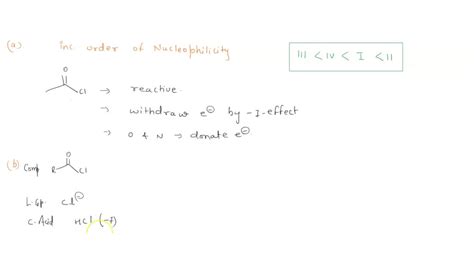 (a) inc order of Nucleophilicity
III < IV < I < II
O
Cl → reactive.
→ withdraw e⊖ by -I-effect
→ O & N → donate e⊖
(b)
O
Comp R Cl
L.Gp Cl⊖
C.Acid HCl (-7)